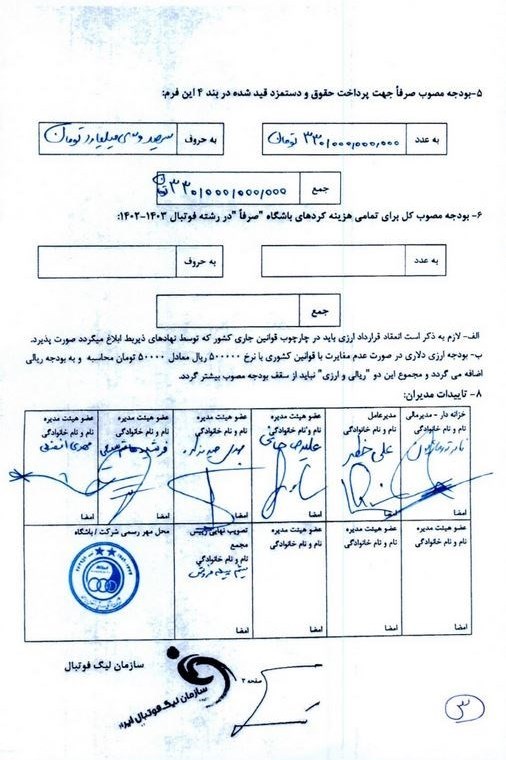 ۵-بودجه مصوب صرفاً جهت پرداخت حقوق و دستمزد قید شده در بند ۴ این فرم:
به عدد ۳۳۰/۰۰۰,۰۰۰,۰۰۰ تومان به حروف سیصد و سی میلیارد تومان
جمع ۳۳۰/۰۰۰/۰۰۰/۰۰۰
۶- بودجه مصوب کل برای تمامی هزینه کردهای باشگاه "صرفاً "در رشته فوتبال ۱۴۰۳-۱۴۰۲:
به عدد به حروف
جمع
الف- لازم به ذکر است انعقاد قرارداد ارزی باید در چارچوب قوانین جاری کشور که توسط نهادهای ذیربط ابلاغ میگردد صورت پذیرد.
ب- بودجه ارزی دلاری در صورت عدم مغایرت با قوانین کشوری با نرخ ۵۰۰۰۰۰ ریال معادل ۵۰۰۰۰ تومان محاسبه و به بودجه ریالی
اضافه می گردد و مجموع این دو "ریالی و ارزی" نباید از سقف بودجه مصوب بیشتر گردد.
۸- تاییدات مدیران:
خزانه دار - مدیرمالی مدیرعامل عضو هیئت مدیره عضو هیئت مدیره عضو هیئت مدیره عضو هیئت مدیره
نام و نام خانوادگی نام و نام خانوادگی نام و نام خانوادگی نام و نام خانوادگی نام و نام خانوادگی نام و نام خانوادگی
علی خطیر
امضا امضا امضا امضا امضا امضا
عضو هیئت مدیره عضو هیئت مدیره عضو هیئت مدیره تصویب نهایی رئیس محل مهر رسمی شرکت / باشگاه
نام و نام خانوادگی نام و نام خانوادگی نام و نام خانوادگی مجمع
نام و نام خانوادگی
امضا امضا امضا امضا
سازمان لیگ فوتبال
صفحه ۳
سازمان لیگ فوتبال ایران
۳